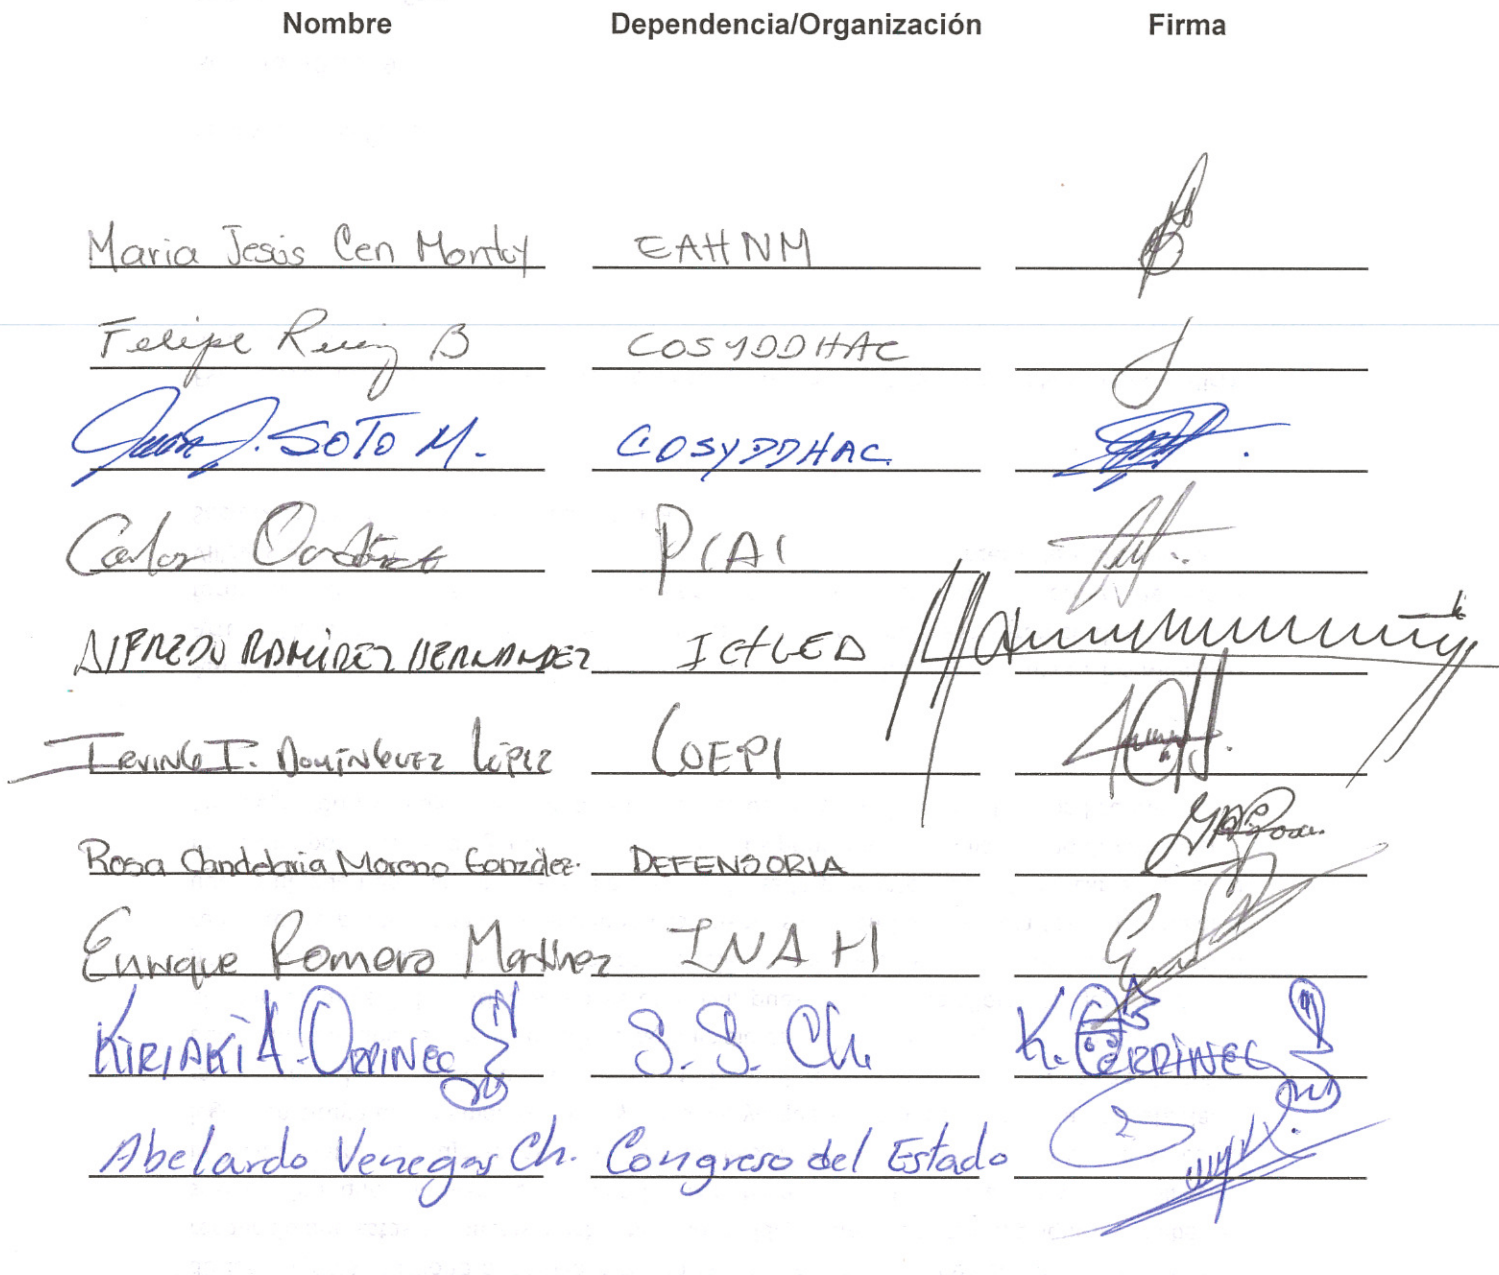 Nombre Dependencia/Organización Firma
Maria Jesús Cen Montuy EAHNM
Felipe Ruiz B COSYDDHAC
Juan J. SOTO M. COSYDDHAC
Carlos PIAI
ALFREDO RAMÍREZ HERNANDEZ ICHLED
IRVING I. DOMÍNGUEZ LÓPEZ COEPI
Rosa Candelaria Moreno González. DEFENSORIA
Enrique Romero Martínez INAH
KIRIAKI A. ORPINEL S. S. Ch. K. ORPINEL
Abelardo Venegas Ch. Congreso del Estado